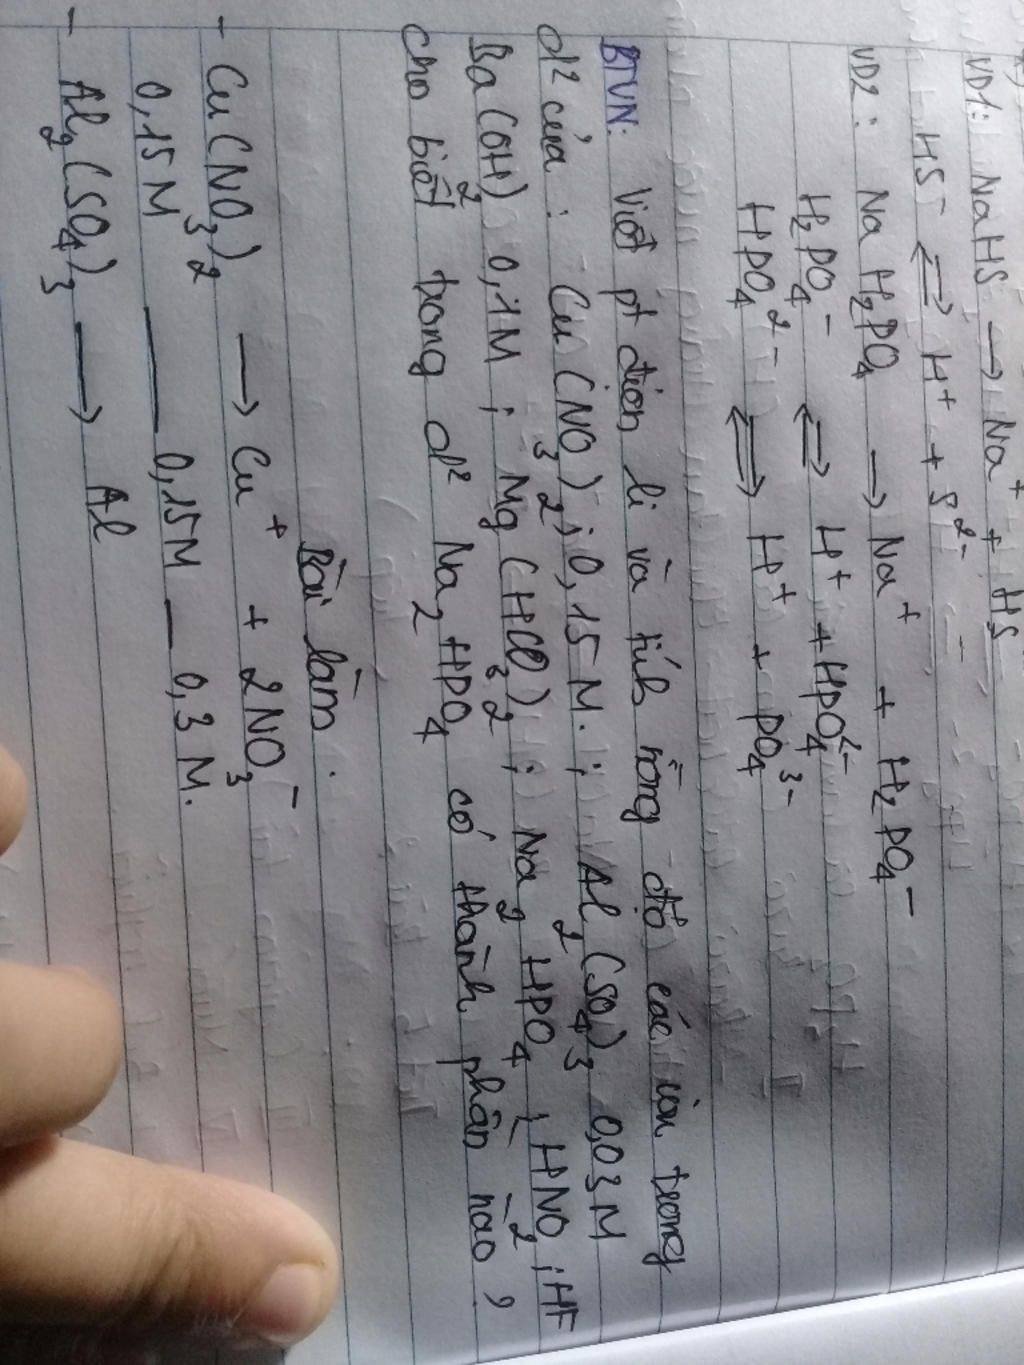 VD1: NaHS → Na⁺ + HS⁻
HS⁻ ⇌ H⁺ + S²⁻
VD2: NaH₂PO₄ → Na⁺ + H₂PO₄⁻
H₂PO₄⁻ ⇌ H⁺ + HPO₄²⁻
HPO₄²⁻ ⇌ H⁺ + PO₄³⁻
BTVN: Viết pt điện li và tính nồng độ các ion trong
d² của: Cu(NO₃)₂; 0,15 M.; Al₂(SO₄)₃ 0,03M
Ba(OH)₂ 0,1M; Mg(HCO₃)₂; Na₂HPO₄; HNO₂; HF
cho biết trong d² Na₂HPO₄ có thành phần nào?
Bài làm.
- Cu(NO₃)₂ → Cu⁺ + 2NO₃⁻
0,15M — 0,15M — 0,3M.
- Al₂(SO₄)₃ → Al